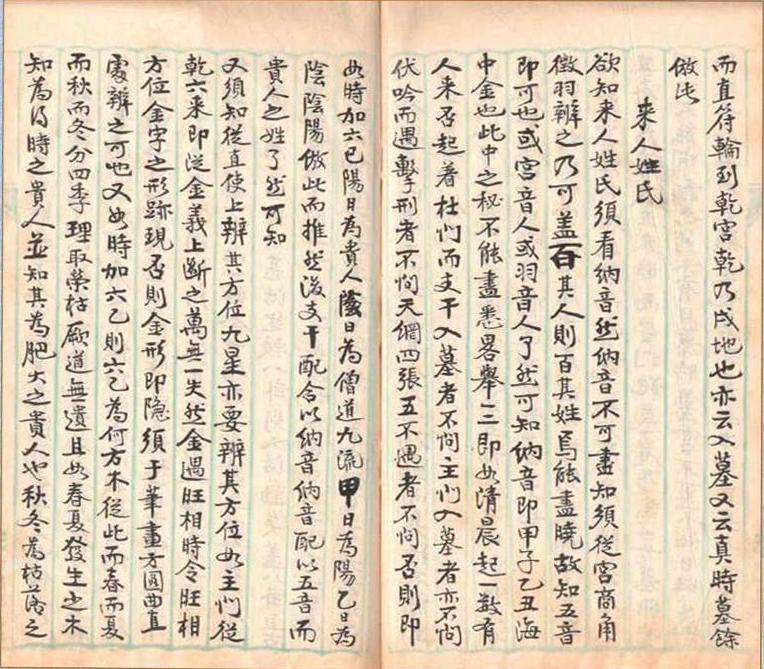 而直符輪到乾宮乾乃戌地也亦云入墓又云真時墓餘
倣此
来人姓氏
欲知来人姓氏須看納音然納音不可盡知須從宮商角
徵羽辨之乃可盖百其人則百其姓焉能盡曉故知五音
即可也或宮音人或羽音人了然可知納音即甲子乙丑海
中金也此中之秘不能盡悉畧舉三即如清晨起一数有
人来否起着杜们而支干入墓者不问王们入墓者亦不问
伏吟而遇擊刑者不问天網四張五不遇者不问否則即
如時加六已陽日為貴人陰日為僧道九流甲日為陽乙日為
陰陰陽倣此而推然後支干配合以納音納音配以五音而
貴人之姓了然可知
又須知從直使上辨其方位九星亦要辨其方位如主们從
乾六来即従金義上斷之萬無一失然金遇旺相時令旺相
方位金字之形跡現否則金形即隐須于筆畫方圓曲直
處辨之可也又如時加六乙則六乙為何方木從此而春而夏
而秋而冬分四季理取榮枯厥道無遺且如春夏發生之木
知為得時之貴人並知其為肥大之貴人也秋冬為枯落之